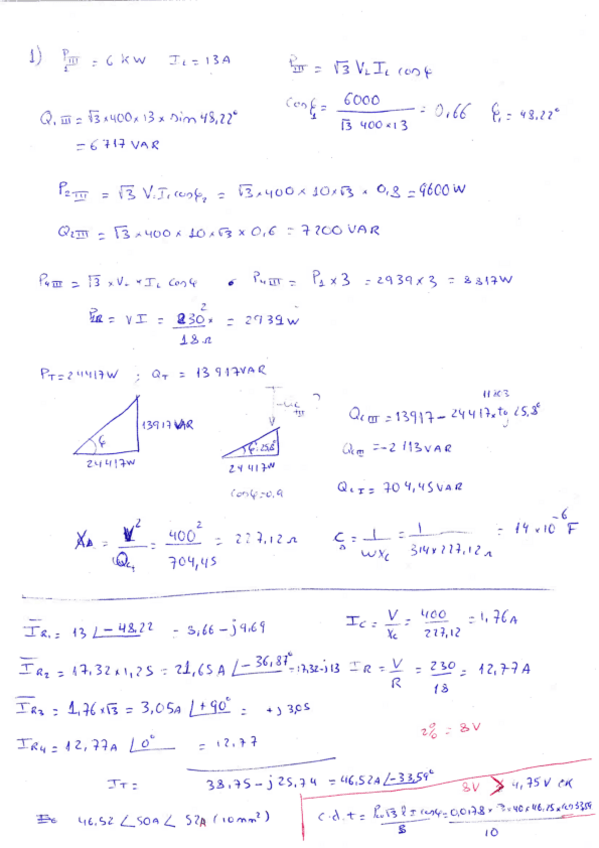 1) P₁III = 6 KW   IL = 13A   PIII = √3 VL IL cosφ
cosφ₁ = 6000 / √3 400×13 = 0,66   φ₁ = 48,22°
Q₁III = √3×400×13× sin 48,22°
= 6717 VAR
P₂III = √3 V·IL cosφ₂ = √3×400×10×√3 × 0,8 = 9600 W
Q₂III = √3×400×10×√3×0,6 = 7200 VAR
P₄III = √3 × VL × IL cosφ • P₄III = P₁ × 3 = 2939×3 = 8817W
P1R = VI = 230² / 18Ω = 2939 W
PT = 24417W ; QT = 13917VAR
13917 VAR
φ
24417W
?
φ=25,8°
24417W
cosφ=0,9
11803
QcIII = 13917 - 24417×tg 25,8°
QcIII = -2113VAR
QcI = 704,45VAR
XΔ = V² / Qc₁ = 400² / 704,45 = 227,12Ω   CΔ = 1 / WXc = 1 / 314×227,12Ω = 14×10⁻⁶ F
IR1 = 13 ∠-48,22 = 8,66 - j9,69   IC = V / Xc = 400 / 227,12 = 1,76A
IR2 = 17,32×1,25 = 21,65A ∠-36,87° = 17,32-j13   IR = V / R = 230 / 18 = 12,77A
IR3 = 1,76×√3 = 3,05A ∠+90° = +j3,05
2% = 8V
IR4 = 12,77A ∠0° = 12,77
IT = 38,75 - j25,74 = 46,52A ∠-33,59°
8V > 4,75V OK
46,52 < 50A < 52A (10mm²)
c.d.t =